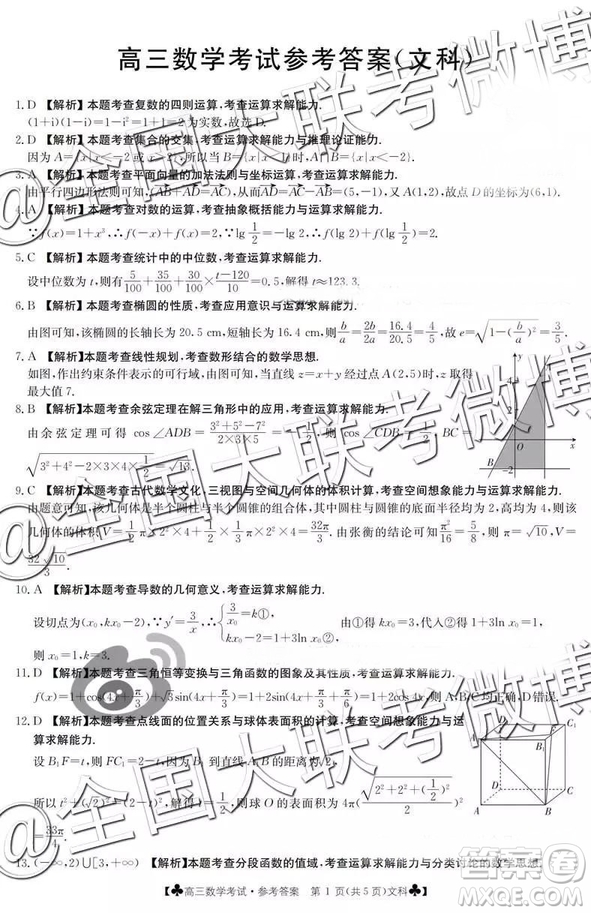 高三数学考试参考答案(文科)
1. D 【解析】本题考查复数的四则运算,考查运算求解能力.
(1+i)(1-i)=1-i²=1+1=2为实数,故选D.
2. D 【解析】本题考查集合的交集,考查运算求解能力与推理论证能力.
因为A={x|x<-2或x>
3. A 【解析】本题考查平面向量的加法法则与坐标运算,考查运算求解能力.
由平行四边形法则可知,AB+AD=AC,AD=AC-AB=(5,-1),又A(1,2),故点D的坐标为(6,1).
【解析】本题考查对数的运算,考查抽象概括能力与运算求解能力.
∵f(x)=1+x³,∴f(-x)+f(x)=2,∵lg 1/2=-lg 2,∴f(lg 2)+f(lg 1/2)=2.
5. C 【解析】本题考查统计中的中位数,考查运算求解能力.
设中位数为t,则有5/100+35/100+30/100×(t-120)/10=0.5,解得t≈123.3.
6. B 【解析】本题考查椭圆的性质,考查应用意识与运算求解能力.
由图可知,该椭圆的长轴长为20.5 cm,短轴长为16.4 cm,则b/a=2b/2a=16.4/20.5=4/5,故e=√(1-(b/a)²)
7. A 【解析】本题考查线性规划,考查数形结合的数学思想.
如图,作出约束条件表示的可行域,由图可知,当直线z=x+y经过点A(2,5)时,z取
最大值7.
8. B 【解析】本题考查余弦定理在解三角形中的应用,考查运算求解能力.
由余弦定理可得cos∠ADB=(3²+5²-7²)/(2×3×5) BC=
√(3²+4²-2×3×4×1/2)=√13.
9. C 【解析】本题考查古代数学文化,三视图与空间几何体的体积计算,考查空间想象能力与运算求解能力.
由题意可知,该几何体是半个圆柱与半个圆锥的组合体,其中圆柱与圆锥的底面半径均为2,高均为4,所以该
几何体的体积V=1/2π×2²×4+1/2×1/3π×2²×4=32π/3.由张衡的结论可知π²/16=5/8,则π=√10,V=
32√10/3.
10. A 【解析】本题考查导数的几何意义,考查运算求解能力.
设切点为(x₀,kx₀-2),∵y′=3/x,∴{3/x₀=k①, kx₀-2=1+3ln x₀②,由①得kx₀=3,代入②得1+3ln x₀=1,
则x₀=1,k=3.
11. D 【解析】本题考查三角恒等变换与三角函数的图象及其性质,考查运算求解能力.
则A,B,C均正确,D错误.
12. D 【解析】本题考查点线面的位置关系与球体表面积的计算,考查空间想象能力与运
算求解能力.
设B₁F=t,则FC₁=2-t,因为
所以t²+(√2)²= 则球O的表面积为4π(√(2²+2²+(1/2)²)/2)²
=33π/4.
13. (-∞,2)∪[3,+∞) 【解析】本题考查分段函数的值域,考查运算求解能力与分类讨论的数学思想.
♣高三数学考试·参考答案 第1页(共5页)文科♣
@全国大联考微博
@全国大联考微博
@全国大联考微博
作业帮